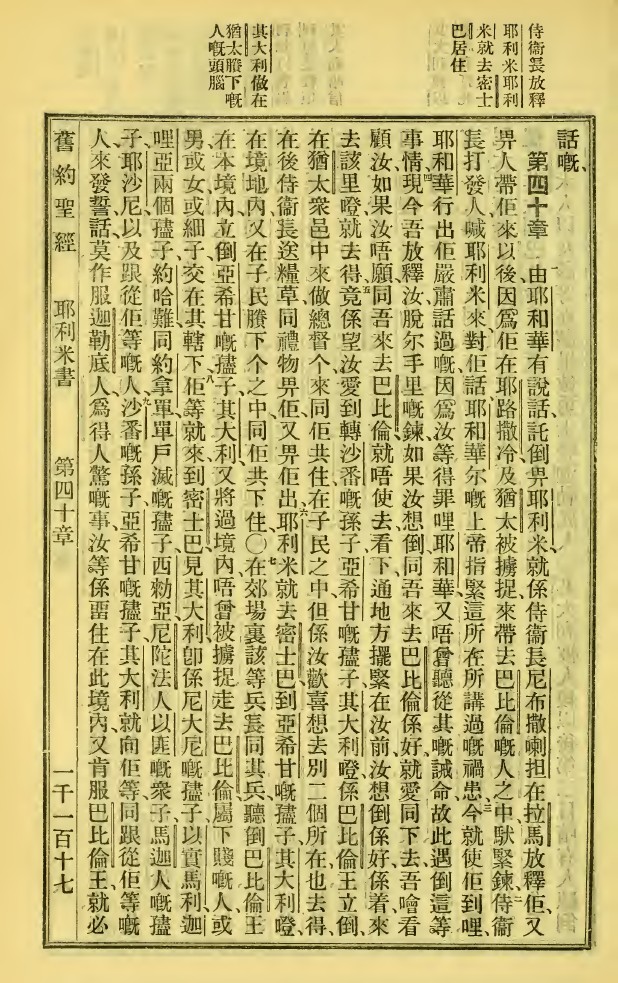 侍衛長放釋
耶利米耶利
米就去密士
巴居住
其大利做在
猶太賸下嘅
人嘅頭腦
話嘅、
第四十章 一由耶和華有說話託倒畀耶利米、就係侍衛長尼布撒喇担在拉馬放釋佢、又
畀人帶佢來以後因爲佢在耶路撒冷及猶太被擄捉來帶去巴比倫嘅人之中緊鍊、二侍衛
長打發人喊耶利米來對佢話耶和華尔嘅上帝指緊這所在所講過嘅禍患、三今就使佢到哩、
耶和華行出佢嚴肅話過嘅、因爲汝等得罪哩耶和華、又唔曾聽從其嘅誡命故此遇倒這等
事情、四現今吾放釋汝脫尔手里嘅鍊如果汝想倒同吾來去巴比倫係好、就愛同下去吾噲看
顧汝如果汝唔願同吾來去巴比倫就唔使去看下通地方擺緊在汝前汝想倒係好係着來
去該里噔就去得、五竟係望汝愛到轉沙番嘅孫子亞希甘嘅孻子、其大利噔係巴比倫王立倒、
在猶太衆邑中來做總督个來同佢共住在子民之中但係汝歡喜想去別二個所在也去得、
在後侍衛長送糧草同禮物畀佢、又畀佢出、六耶利米就去密士巴到亞希甘嘅孻子、其大利噔、
在境地內又在子民賸下个之中同佢共下住、〇七在郊場裏該等兵長同其兵聽倒巴比倫王
在本境內立倒亞希甘嘅孻子其大利又將過境內唔曾被擄捉走去巴比倫屬下賤嘅人或
男或女或細子交在其轄下、八佢等就來到密士巴見其大利、卽係尼大尼嘅孻子以實馬利、迦
哩亞兩個孻子約哈難同約拿單單戶滅嘅孻子西勑亞、尼陀法人以匪嘅衆子、馬迦人嘅孻
子、耶沙尼以及跟從佢等嘅人、九沙番嘅孫子、亞希甘嘅孻子其大利就向佢等同跟從佢等嘅
人來發誓話莫作服迦勒底人爲得人驚嘅事汝等係畱住在此境內、又肯服巴比倫王就必
舊約聖經 耶利米書 第四十章 一千一百十七